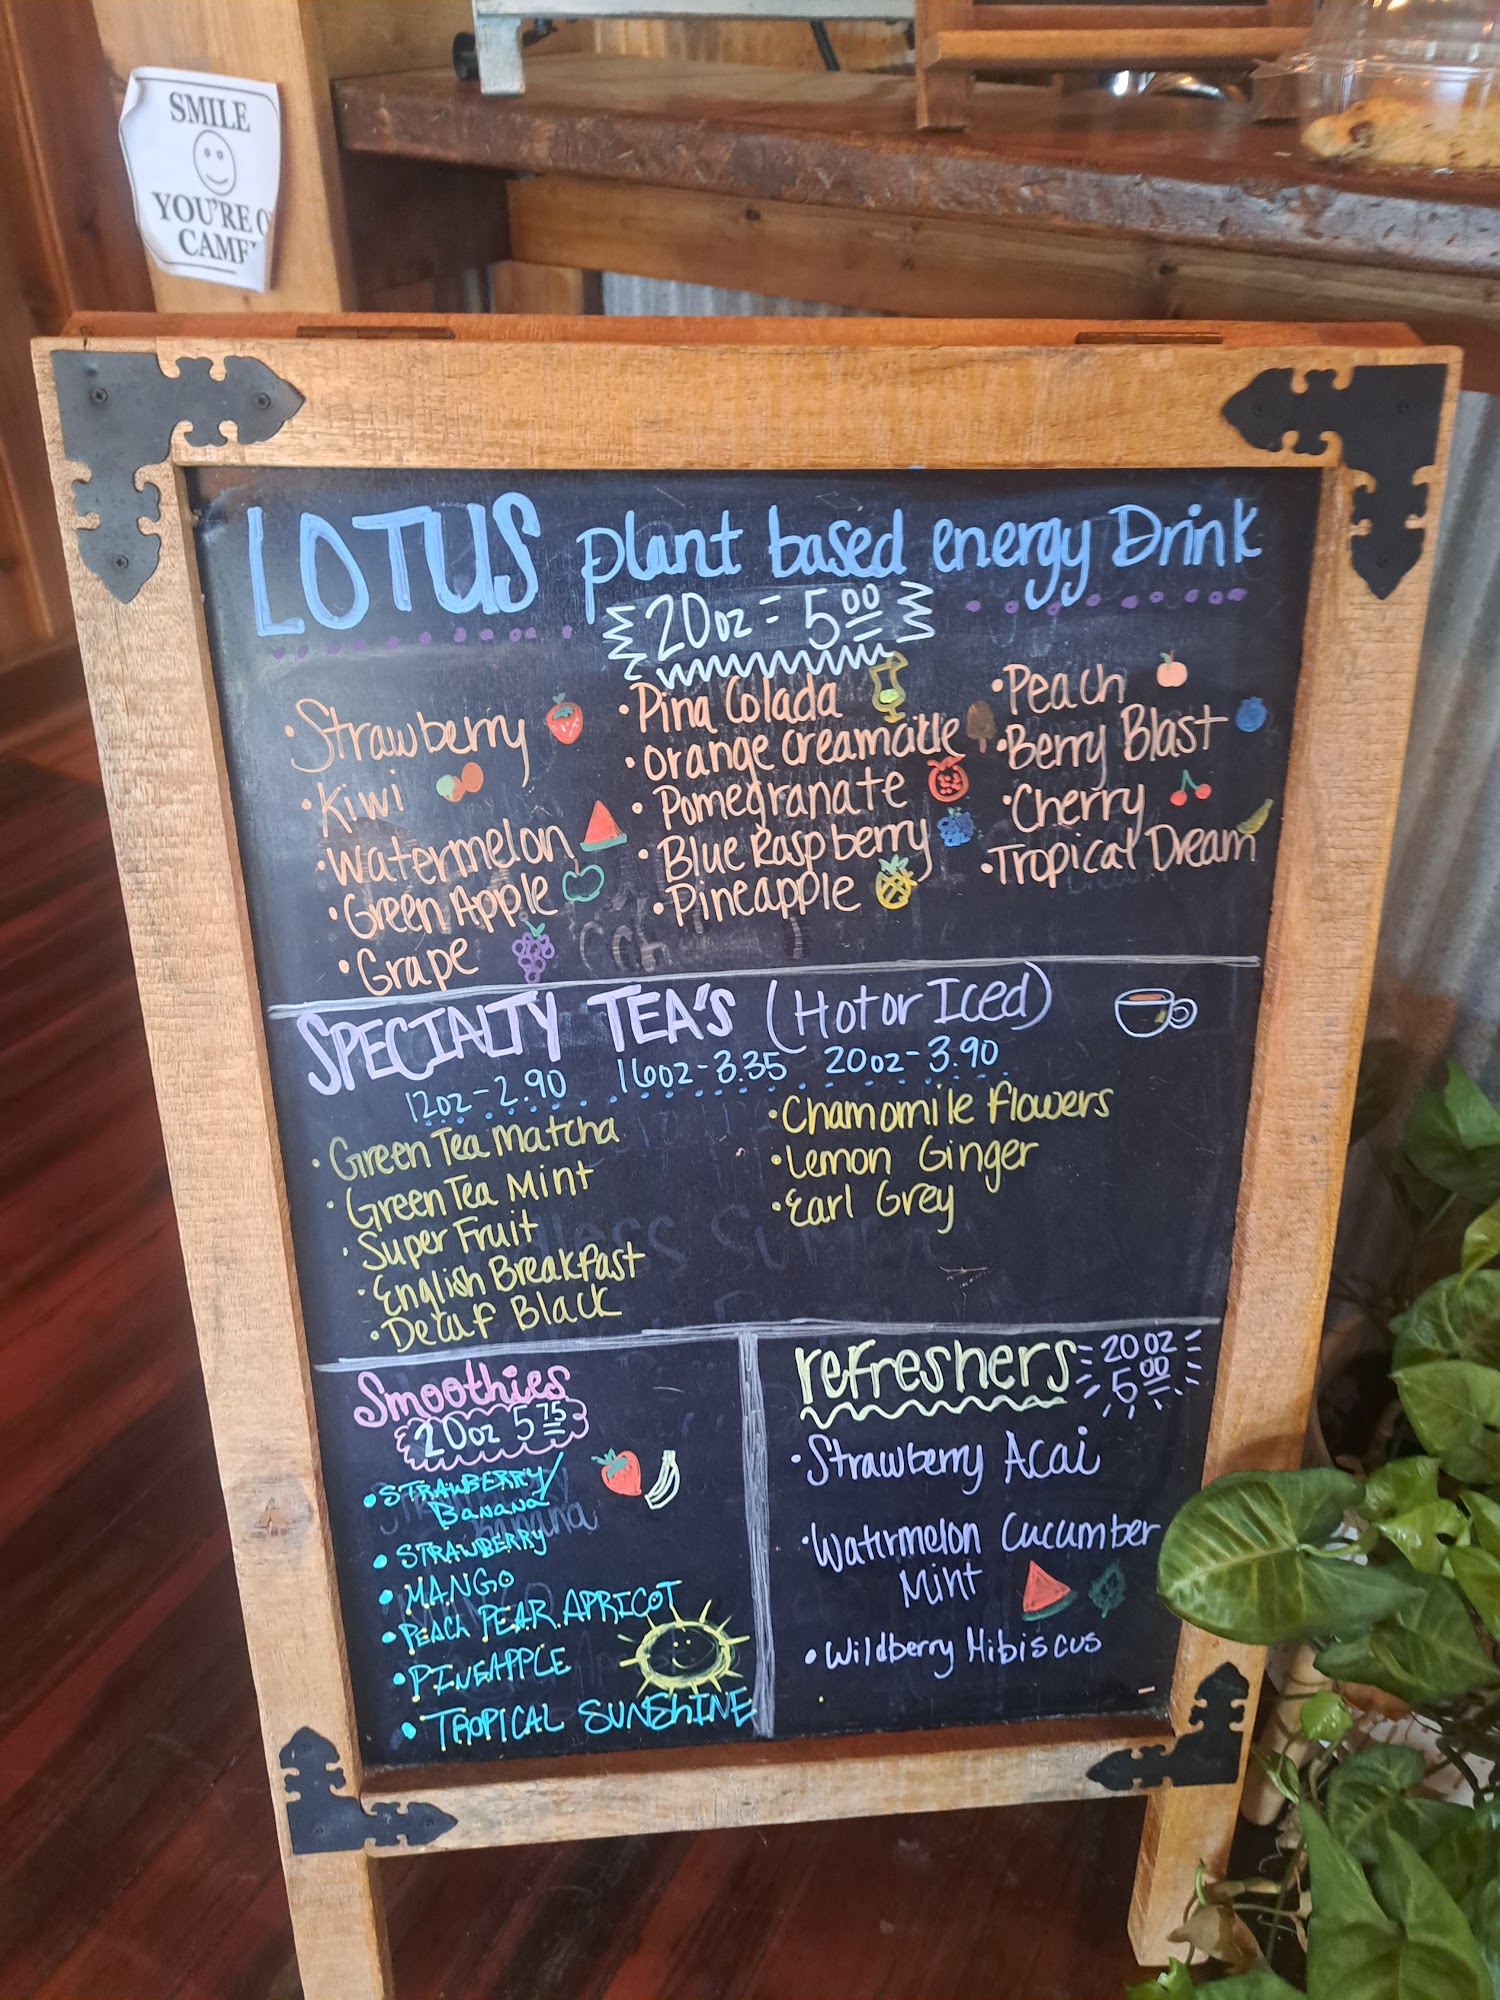 SMILE
YOU'RE O
CAME
LOTUS plant based energy Drink
20oz = 5.00
• Strawberry
• Kiwi
• Watermelon
• Green Apple
• Grape
• Pina Colada
• Orange Creamcicle
• Pomegranate
• Blue Raspberry
• Pineapple
• Peach
• Berry Blast
• Cherry
• Tropical Dream
SPECIALTY TEA'S (Hot or Iced)
12oz - 2.90 16oz - 3.35 20oz - 3.90
• Green Tea Matcha
• Green Tea Mint
• Super Fruit
• English Breakfast
• Decaf Black
• Chamomile Flowers
• Lemon Ginger
• Earl Grey
Smoothies
20oz 5.75
• STRAWBERRY/
BANANA
• STRAWBERRY
• MANGO
• PEACH PEAR APRICOT
• PINEAPPLE
• TROPICAL SUNSHINE
refreshers 20oz
5.00
• Strawberry Acai
• Watermelon Cucumber
Mint
• Wildberry Hibiscus